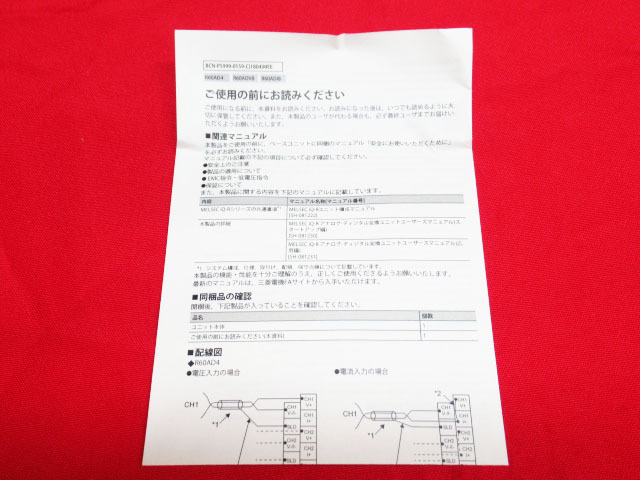 BCN-P5999-0559-C(1804)MEE
R60AD4 R60ADV8 R60ADI8
ご使用の前にお読みください
ご使用になる前に、本資料をお読みください。お読みになった後は、いつでも読めるように大
切に保管してください。また、本製品のユーザが代わる場合も、必ず最終ユーザまでお届けい
ただくようお願いいたします。
■関連マニュアル
本製品をご使用の前に、ベースユニットに同梱のマニュアル「安全にお使いいただくために」
を必ずお読みください。
マニュアル記載の下記の項目について必ず確認してください。
●安全上のご注意
●製品の適用について
●EMC指令・低電圧指令
●保証について
また、本製品に関する内容を下記のマニュアルに記載しています。
内容 マニュアル名称(マニュアル番号)
MELSEC iQ-Rシリーズの共通事項*1 MELSEC iQ-Rユニット構成マニュアル
[SH-081222]
本製品の詳細 MELSEC iQ-R アナログ-ディジタル変換ユニットユーザーズマニュアル(ス
タートアップ編)
[SH-081230]
MELSEC iQ-R アナログ-ディジタル変換ユニットユーザーズマニュアル(応
用編)
[SH-081231]
*1 システム構成、仕様、取付け、配線、保守点検について記載しています。
本製品の機能・性能を十分ご理解のうえ、正しくご使用くださるようお願いいたします。
最新のマニュアルは、三菱電機FAサイトから入手いただけます。
■同梱品の確認
開梱後、下記製品が入っていることを確認してください。
品名 個数
ユニット本体 1
ご使用の前にお読みください(本資料) 1
■配線図
◆R60AD4
●電圧入力の場合 ●電流入力の場合
CH1
*1
CH1
V-/I-
SLD
CH2
V-/I-
SLD
CH1
V+
CH1
I+
CH2
V+
CH2
I+
CH1
*1
*2
CH1
V-/I-
SLD
CH2
V-/I-
SLD
CH1
V+
CH1
I+
CH2
V+
CH2
I+